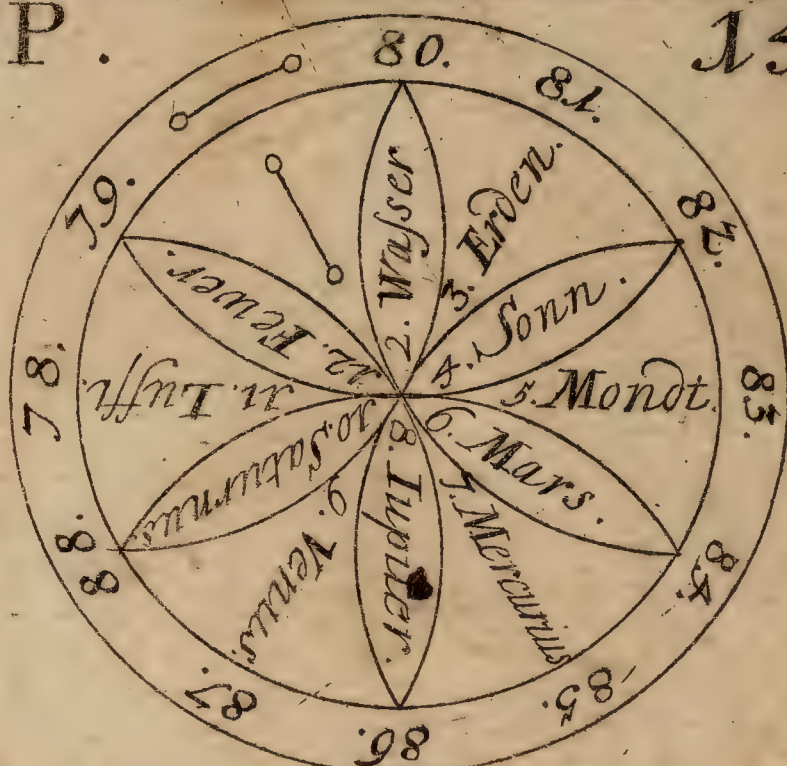 P.
80.
81.
82.
83.
84.
85.
86.
87.
88.
78.
79.
2. Waſser
3. Erden.
4. Sonn.
5. Mondt.
6. Mars.
7. Mercurius
8. Iupiter.
9. Venus.
10. Saturnus.
11. Lufft.
12. Fewer.